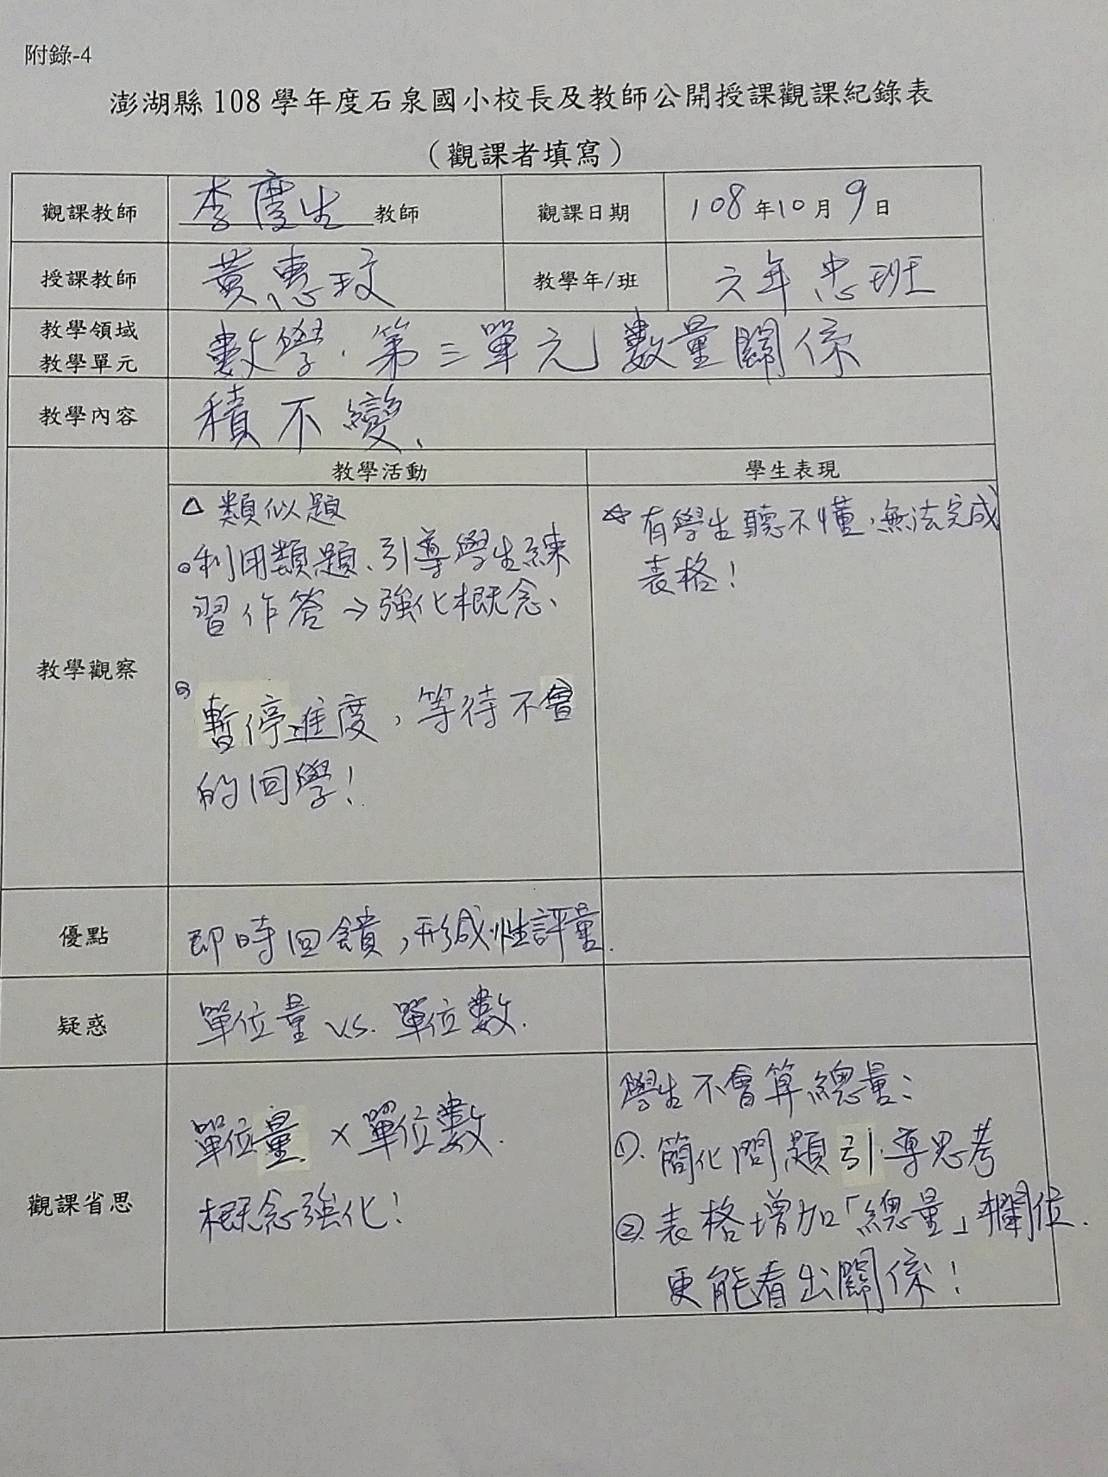 附錄-4
澎湖縣 108 學年度石泉國小校長及教師公開授課觀課紀錄表
（觀課者填寫）
觀課教師 李慶生 教師 觀課日期 108 年 10 月 9 日
授課教師 黃惠玟 教學年/班 六年忠班
教學領域
教學單元 數學、第三單元 數量關係
教學內容 積不變、
教學觀察
教學活動
△ 類似題
。利用類題、引導學生練
習作答→強化概念、
暫停進度，等待不會
的同學！
學生表現
☆ 有學生聽不懂，無法完成
表格！
優點 即時回饋，形成性評量.
疑惑 單位量 vs. 單位數.
觀課省思
單位量 × 單位數.
概念強化！
學生不會算總量：
①. 簡化問題引導思考
②. 表格增加「總量」欄位.
更能看出關係！